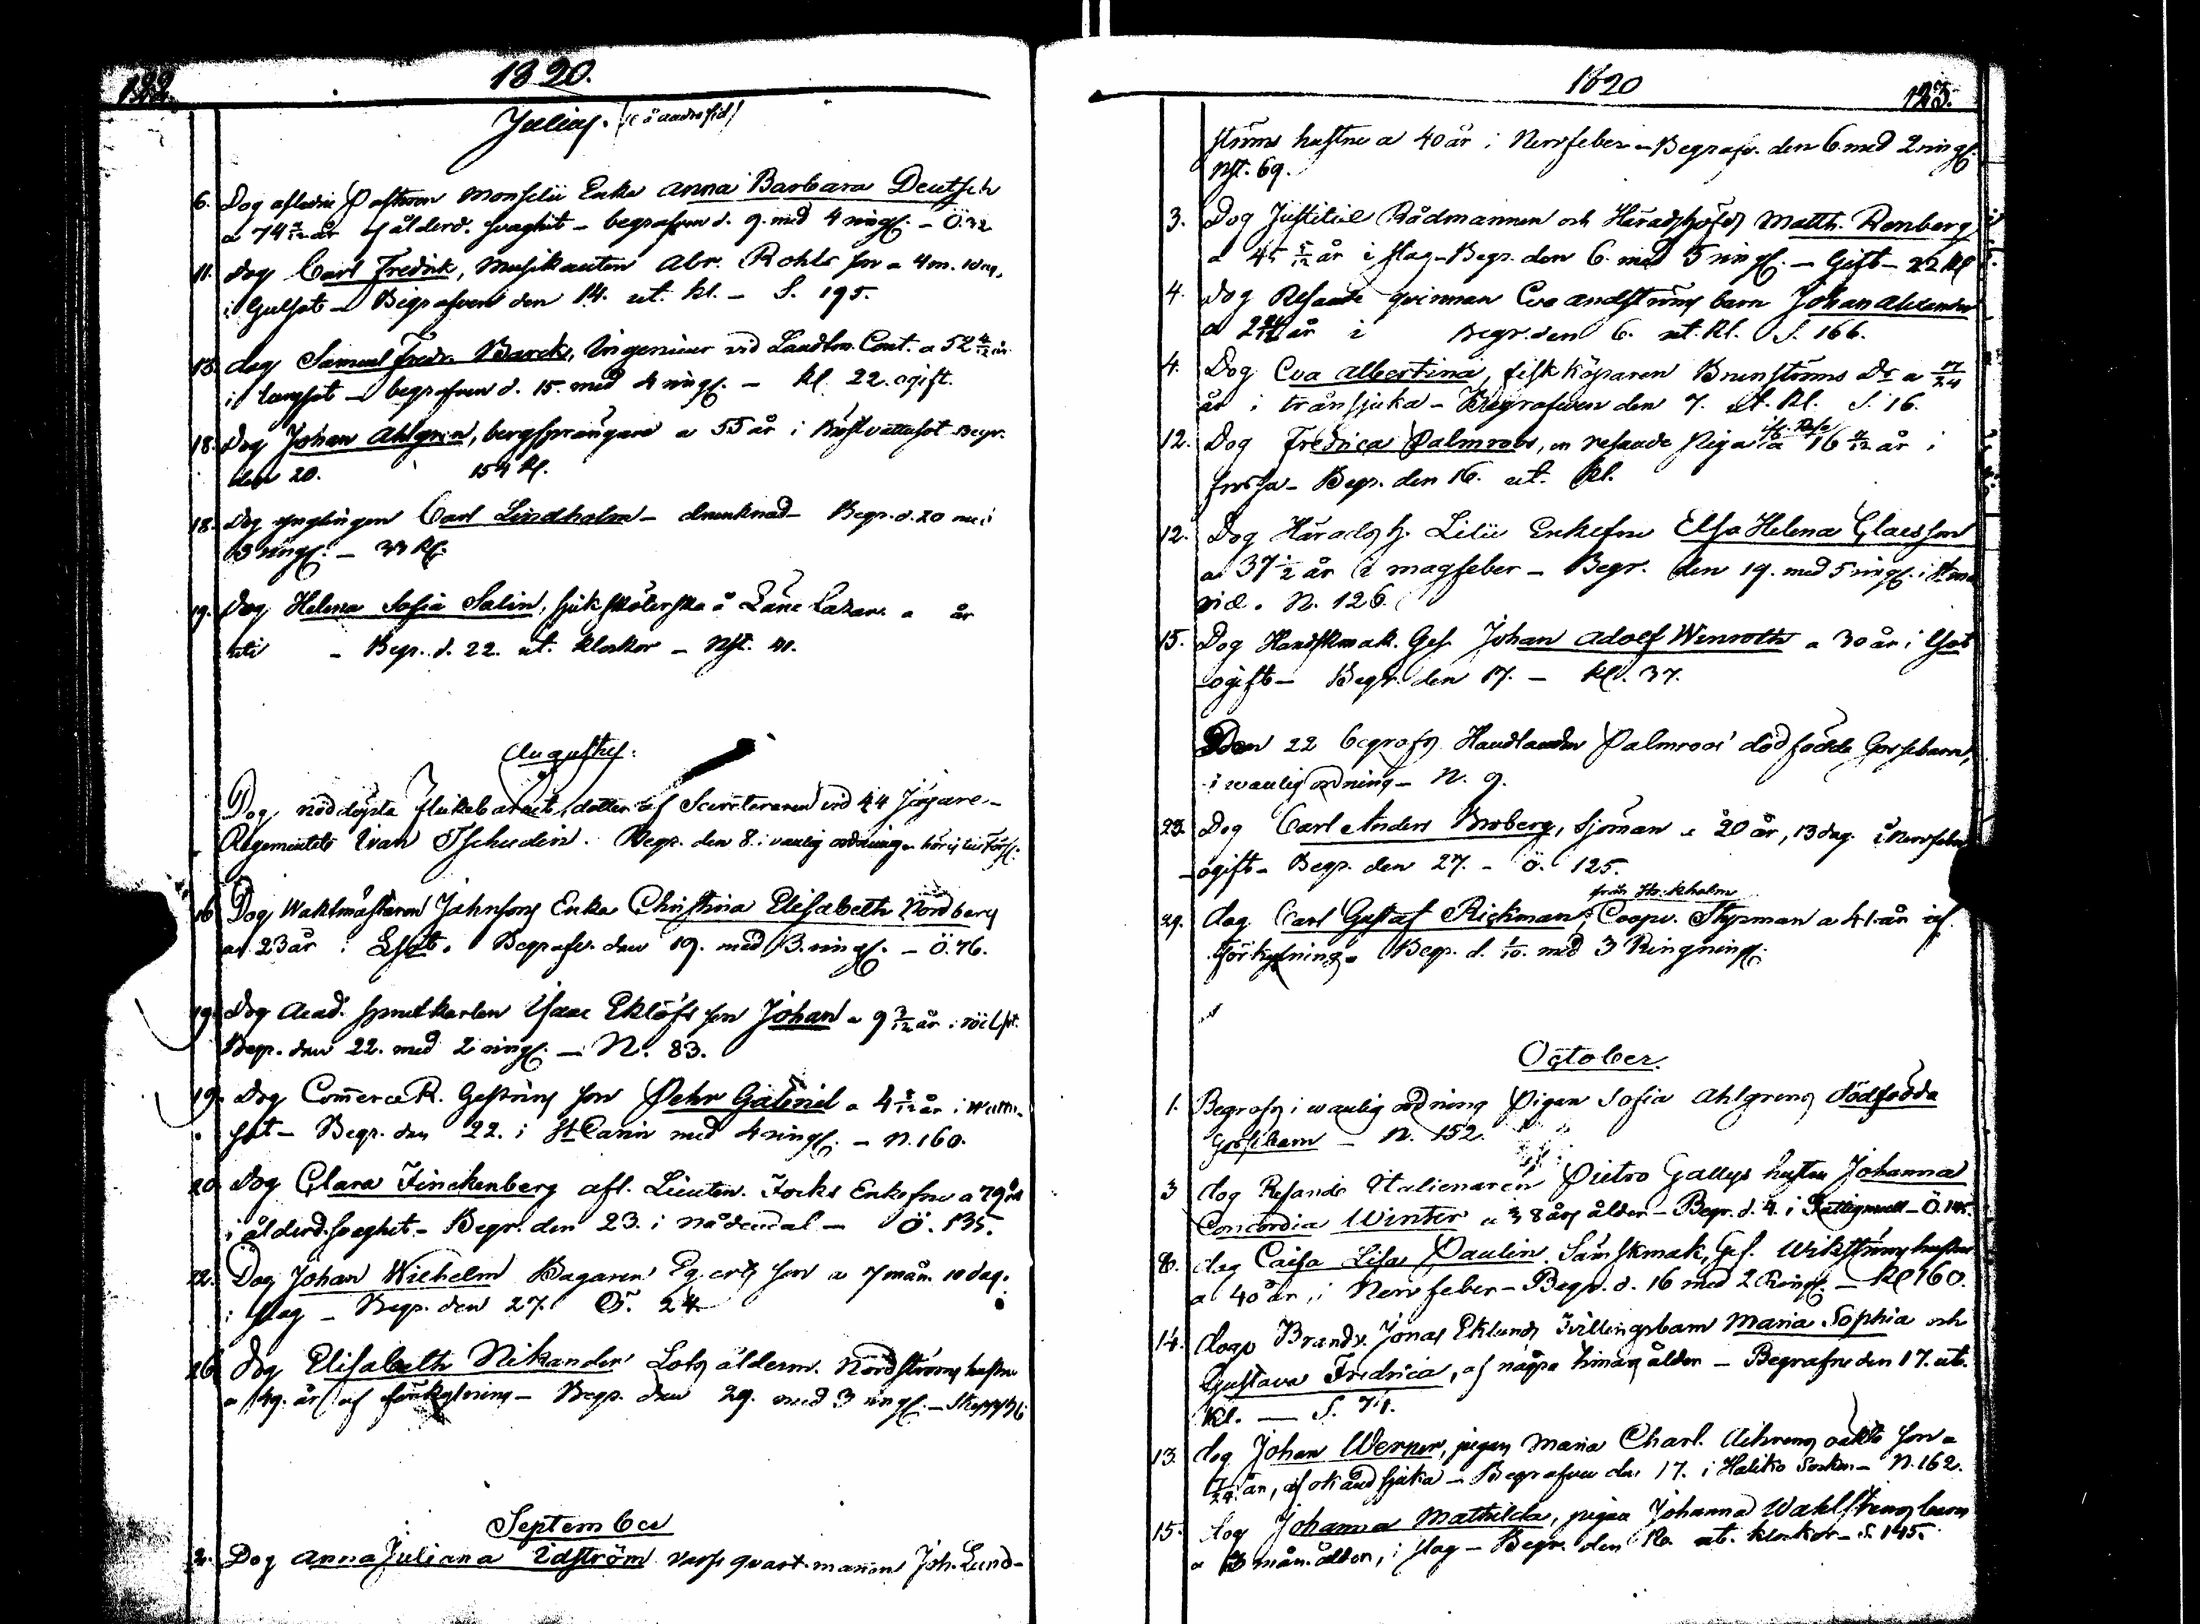 122.
1820.
Julius.
6. Dog afledne Pastoren Monselii Enka Anna Barbara Deutsch
a 74 år af ålderd. svaghet – begrafven d. 9. med 4 ringn. – Ö. 32
11. Dog Carl Fredrik, Musikanten Abr. Rohls son a 4 m. 10 dag.
i Gulsot – Begrafven den 14. ut. kl. – S. 195.
13. dog Samuel Fredr. Barck, Ingenieur vid Landtm. Cont. a 52 4/12 år
i lungsot – begrafven d. 15. med 4 ringn. – kl. 22. ogift.
18. Dog Johan Ahlgren, bergsprängare a 55 år i Bröstvattusot Begr.
den 20. 154 kl.
18. Dog ynglingen Carl Lindholm – drunknad – Begr. d. 20 med
3 ringn. – 33 kl.
19. Dog Helena Sofia Salin, sjuksköterska å Läne Lazar. a år
uti – Begr. d. 22. ut. klockor – Nst. 41.
Augustus.
Dog nöddöpta flickebarnet, dotter af Secreteraren vid 44 Jägare-
Regementets Ivan Tschudin. Begr. den 8. i vanlig ordning
16 Dog Waktmästaren Jahnsons Enka Christina Elisabeth Nordberg
a 23 år i Lsot. Begrafv. den 19. med 3. ringn. – Ö. 76.
19. Dog Acad. sprutkarlen Isaac Eklöfs son Johan a 9 år i rödsot.
Begr. den 22. med 2 ringn. – N. 83.
19. Dog Commerce R. Gestrins son Pehr Gabriel a 4 år i wattu-
sot – Begr. den 22. i St Carin med 4 ringn. – N. 160.
20. Dog Clara Finckenberg afl. Lieuten. Focks Enkefru a 79 år
i ålderd. svaghet – Begr. den 23. i Nådendal – Ö. 135.
22. Dog Johan Wilhelm Bagaren son a 7 mån. 10 dag.
i slag – Begr. den 27. Ö. 24
26. Dog Elisabeth Nikander Lots ålderm. Nordströms hustru
a 49. år af förkylning – Begr. den 29. med 3 ringn.
September
2. Dog Anna Juliana Idström Varfs quart.mannen Joh. Lund-
1820
123.
ströms hustru a 40 år i Nervfeber – Begrafv. den 6. med 2 ringn.
Nst. 69.
3. Dog Justitiæ Rådmannen och Häradshöfd. Matth. Renberg
a 45 5/12 år i slag – Begr. den 6. med 5 ringn. – Gift – 22 kl
4. Dog Resande qvinnan Eva Andströms barn Johan Alexander
a 2 år i Begr. den 6. ut. kl. S. 166.
4. Dog Eva Albertina, fiskköparen Brunströms Dr a 17/24
år i trånsjuka – Begrafven den 7. ut. kl. S. 16.
12. Dog Fredrica Palmroos, en resande Piga a 16 år i
frossa – Begr. den 16. ut. kl.
12. Dog Häradsh. Lilii Enkefru Elsa Helena Claesson
a 37 1/2 år i magfeber – Begr. den 19. med 5 ringn. i
N. 126.
15. Dog Handskmak. Ges. Johan Adolf Wenroth a 30 år i lsot
ogift – Begr. den 17. – kl. 37.
Den 22 begrafs Handlanden Palmroos' dödfödda Gossebarn,
i wanlig ordning – N. 9.
23. Dog Carl Anders Broberg, Sjöman a 20 år, 13 dag. i Nervfeber
ogift – Begr. den 27. – Ö. 125.
från Stockholm
29. dog Carl Gustaf Rickman, Coopv. Styrman a 41 år af
förkylning. Begr. d. 1/10. med 3 Ringning.
October.
1. Begrafs i wanlig ordning Pigan Sofia Ahlgrens dödfödda
gossebarn – N. 152.
3 dog Resande Italienaren Pietro Gallys hustru Johanna
Concordia Winter a 38 års ålder – Begr. d. 4. i
8. dog Caisa Lisa Paulin Sämskmak. Ges. Wikströms hustru
a 40 år, i Nervfeber – Begr. d. 16 med 2 Ringn. – Kl 160.
14. dogo Brandv. Jonas Eklunds Tvillingsbarn Maria Sophia och
Gustava Fredrica, af några timars ålder – Begrafne den 17. ut.
kl. — S. 71.
13. dog Johan Werner, pigan Maria Charl. oäkta son a
1/24 år, af okänd sjuka – Begrafven den 17. i Haliko Socken – N. 162.
15. dog Johanna Mathilda, pigan Johanna Wahlströms barn
a 3 mån. ålder, i slag – Begr. den ut. klockor – S. 145.